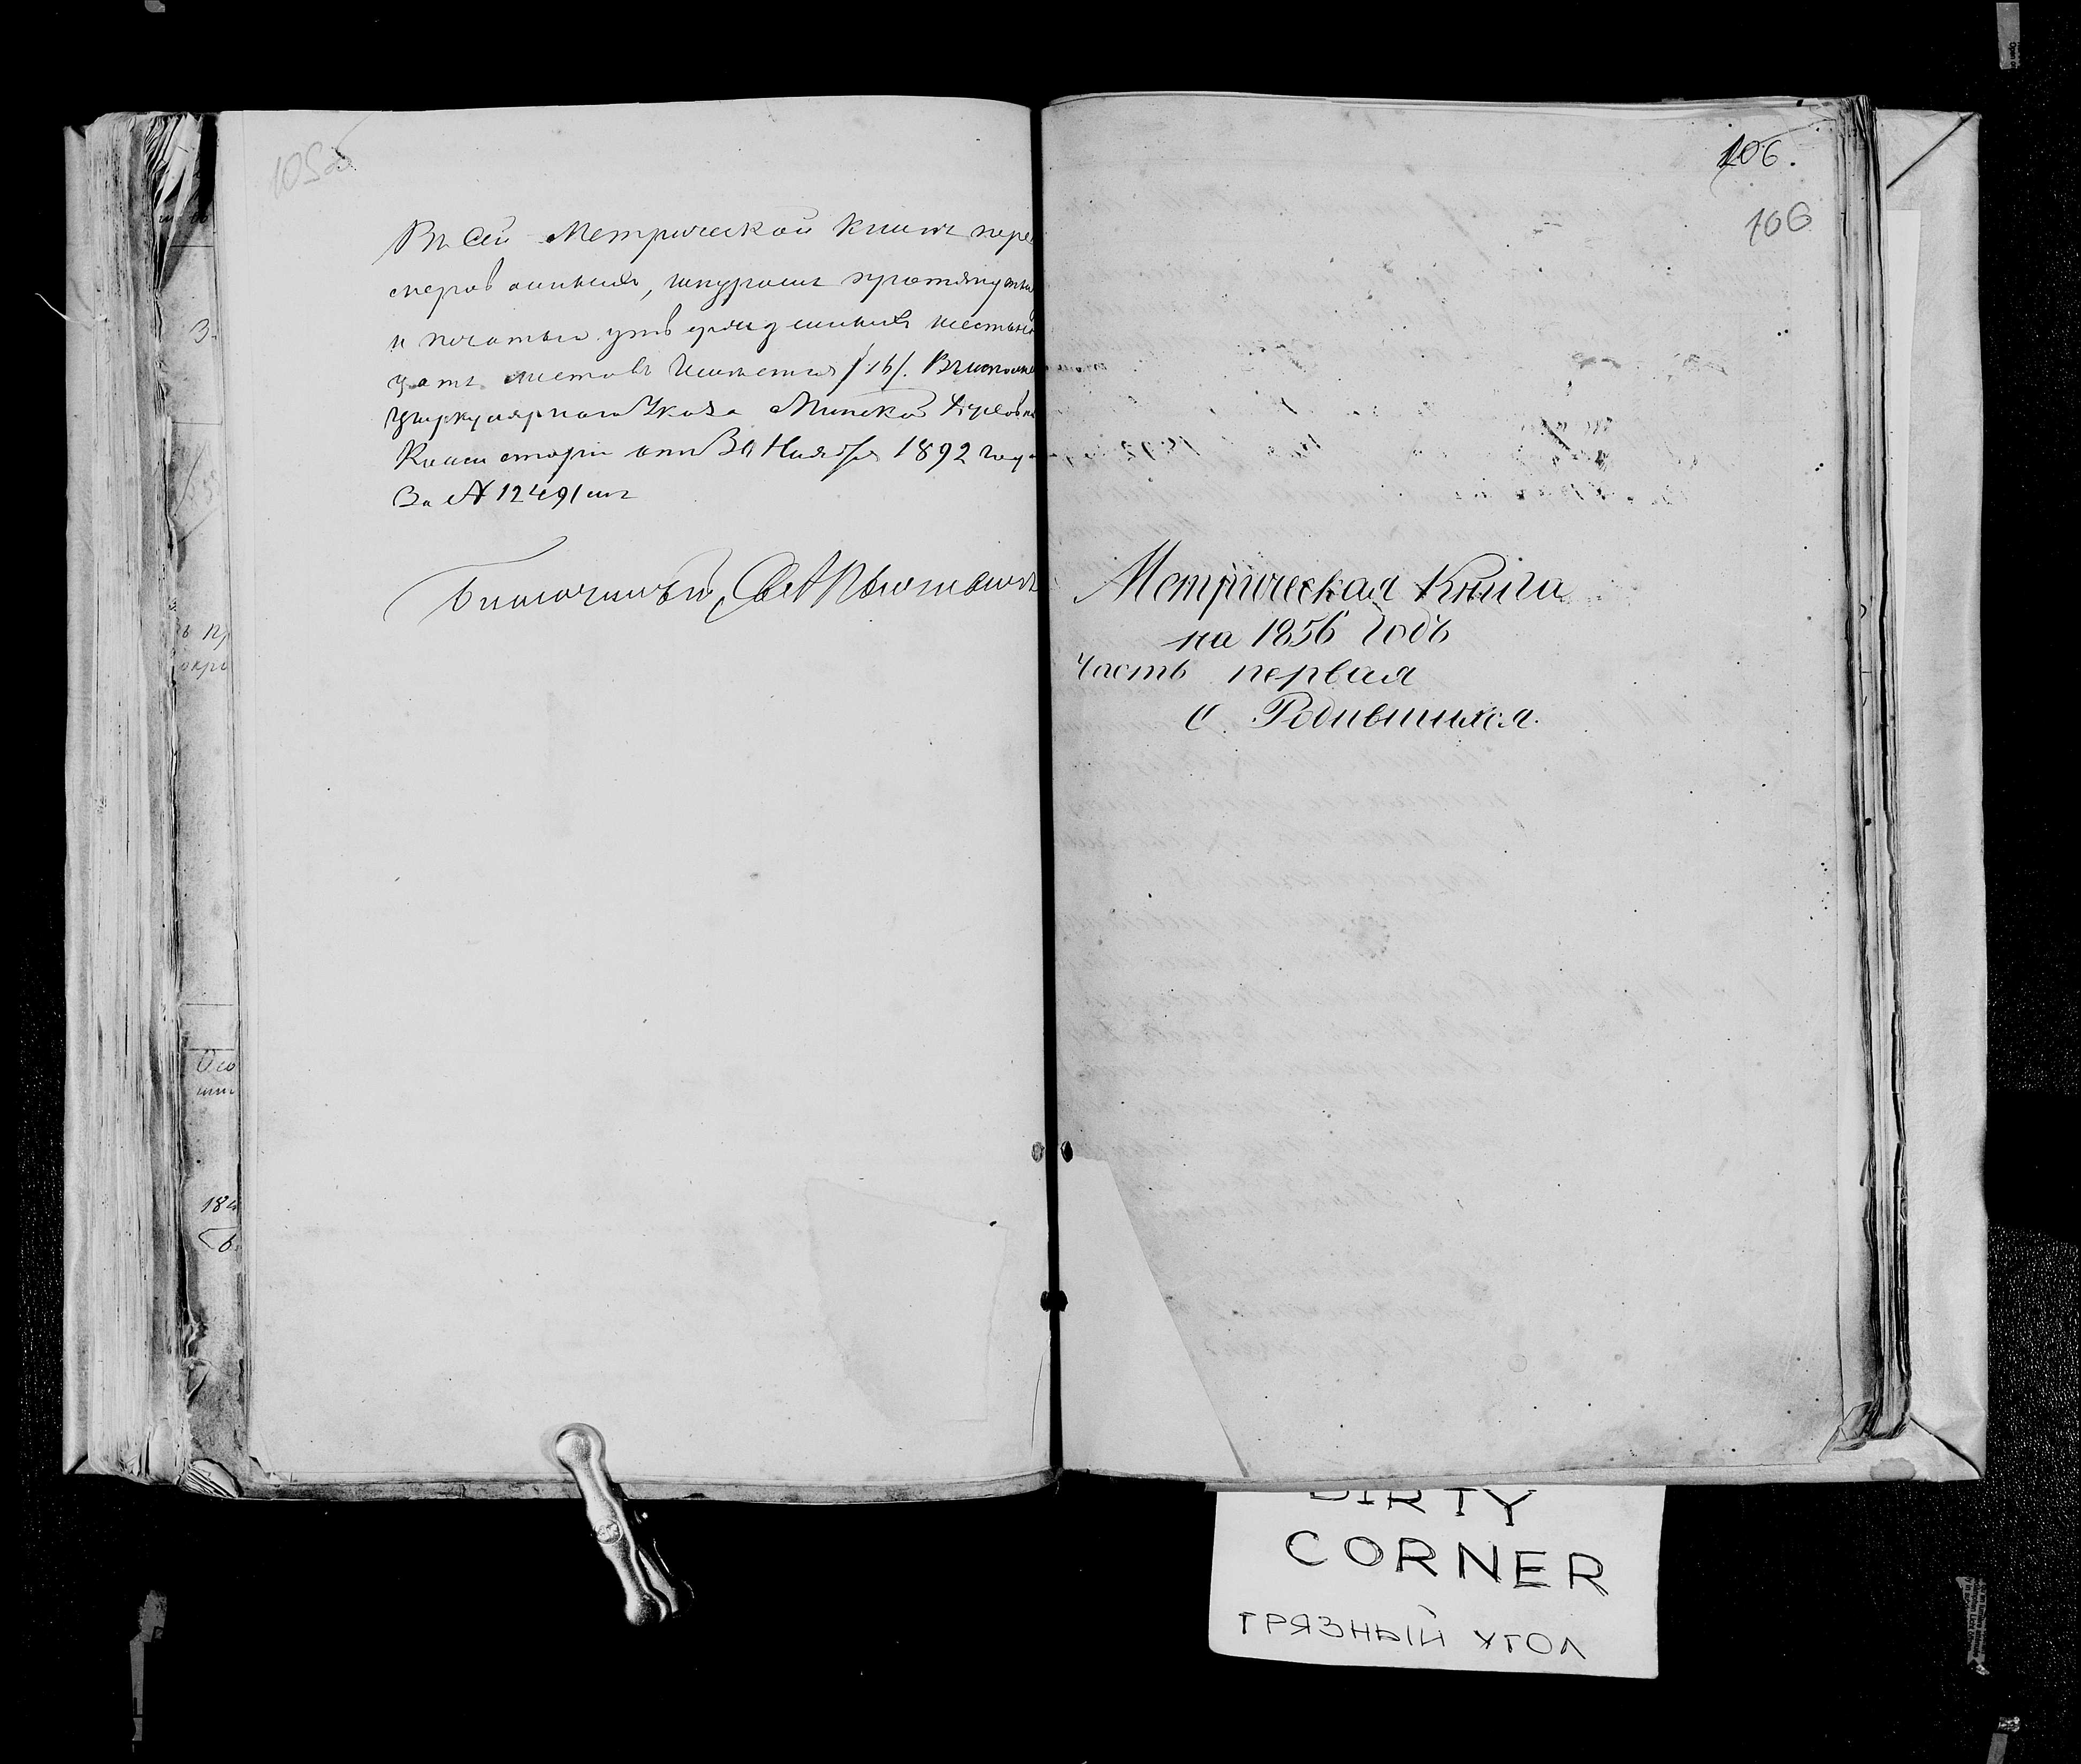 105об
Въ Сей Метрической Книгѣ пере
мерованныхъ, шнуромъ протянутыхъ
и печатью утвержденныхъ шестьна
цать листовъ Имѣется /16/. Въ исполне
Циркулярнаго Указа Минской Духовно
Консисторіи отъ 30 Ноября 1892 года
За № 12491 мъ
Благочинный, Свящ
106.
106
Метрическая Книга
на 1856 Годъ
Часть первая
О Родившихся.
З.
ъ пр
окре
Осо
184
DIRTY
CORNER
ГРЯЗНЫЙ УГОЛ